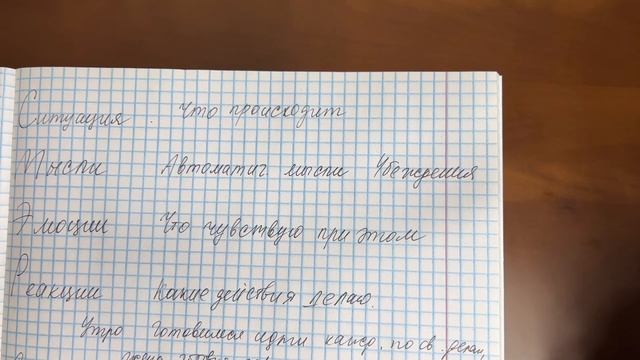 Ситуация. Что происходит
Мысли Автоматич. мысли Убеждения
Эмоции Что чувствую при этом
Реакции Какие действия делаю.
Утро готовимся идти по св. делам,